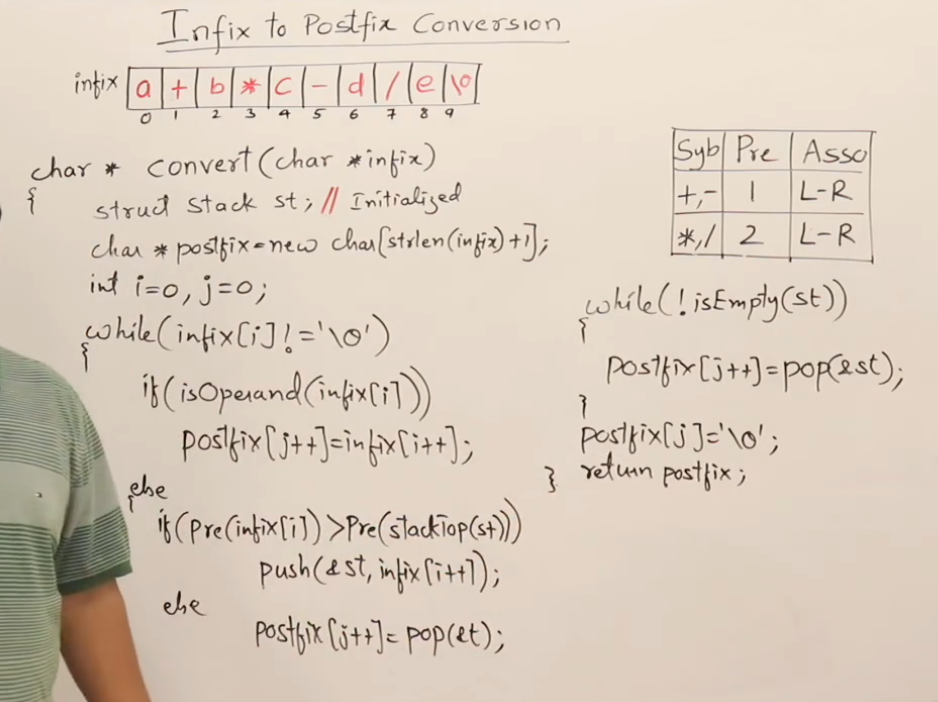 Infix to Postfix Conversion
infix a + b * c - d / e \0
0 1 2 3 4 5 6 7 8 9
char * convert(char *infix)
{
struct stack st; // Initialized
char * postfix=new char[strlen(infix)+1];
int i=0, j=0;
while(infix[i]!='\0')
{
if(isOperand(infix[i]))
postfix[j++]=infix[i++];
else
{
if(Pre(infix[i])>Pre(stackTop(st)))
push(&st, infix[i++]);
else
postfix[j++]= pop(&t);
Syb Pre Asso
+,- 1 L-R
*,/ 2 L-R
while(!isEmpty(st))
{
postfix[j++]=pop(&st);
}
postfix[j]='\0';
return postfix;
}